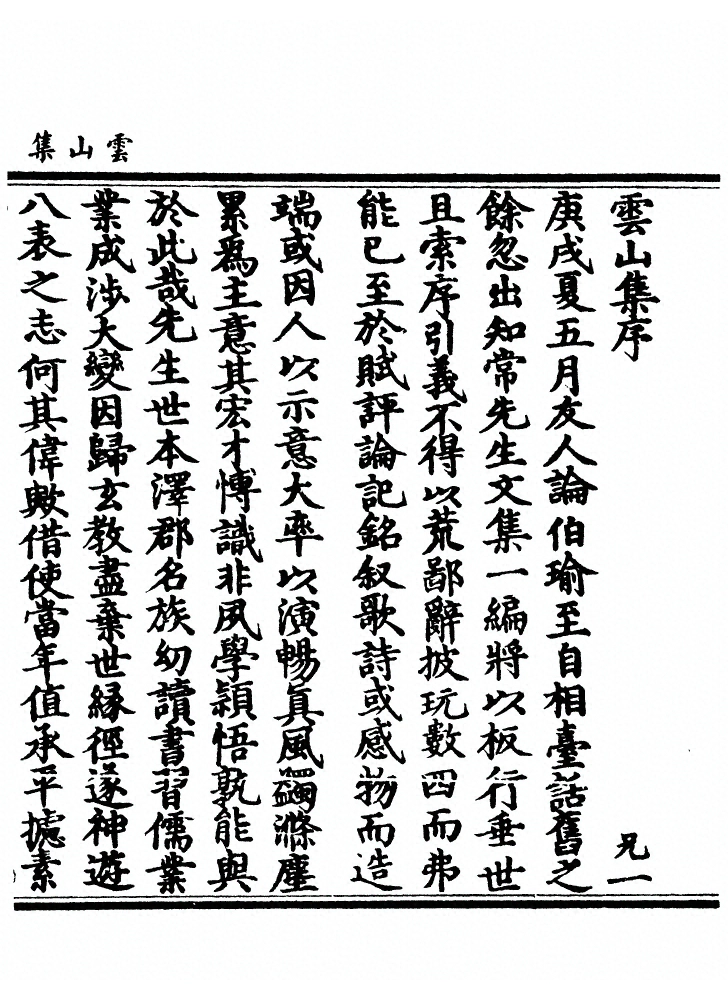 雲山集
雲山集序
兄一
庚戌夏五月友人論伯瑜至自相臺話舊之
餘忽出知常先生文集一編將以板行垂世
且索序引義不得以荒鄙辭披玩數四而弗
能已至於賦評論記銘叙歌詩或感物而造
端或因人以示意大率以演暢真風蠲滌塵
累爲主意其宏才博識非夙學穎悟孰能與
於此哉先生世本澤郡名族幼讀書習儒業
業成涉大變因歸玄教盡棄世緣徑遂神遊
八表之志何其偉歟借使當年值承平攄素